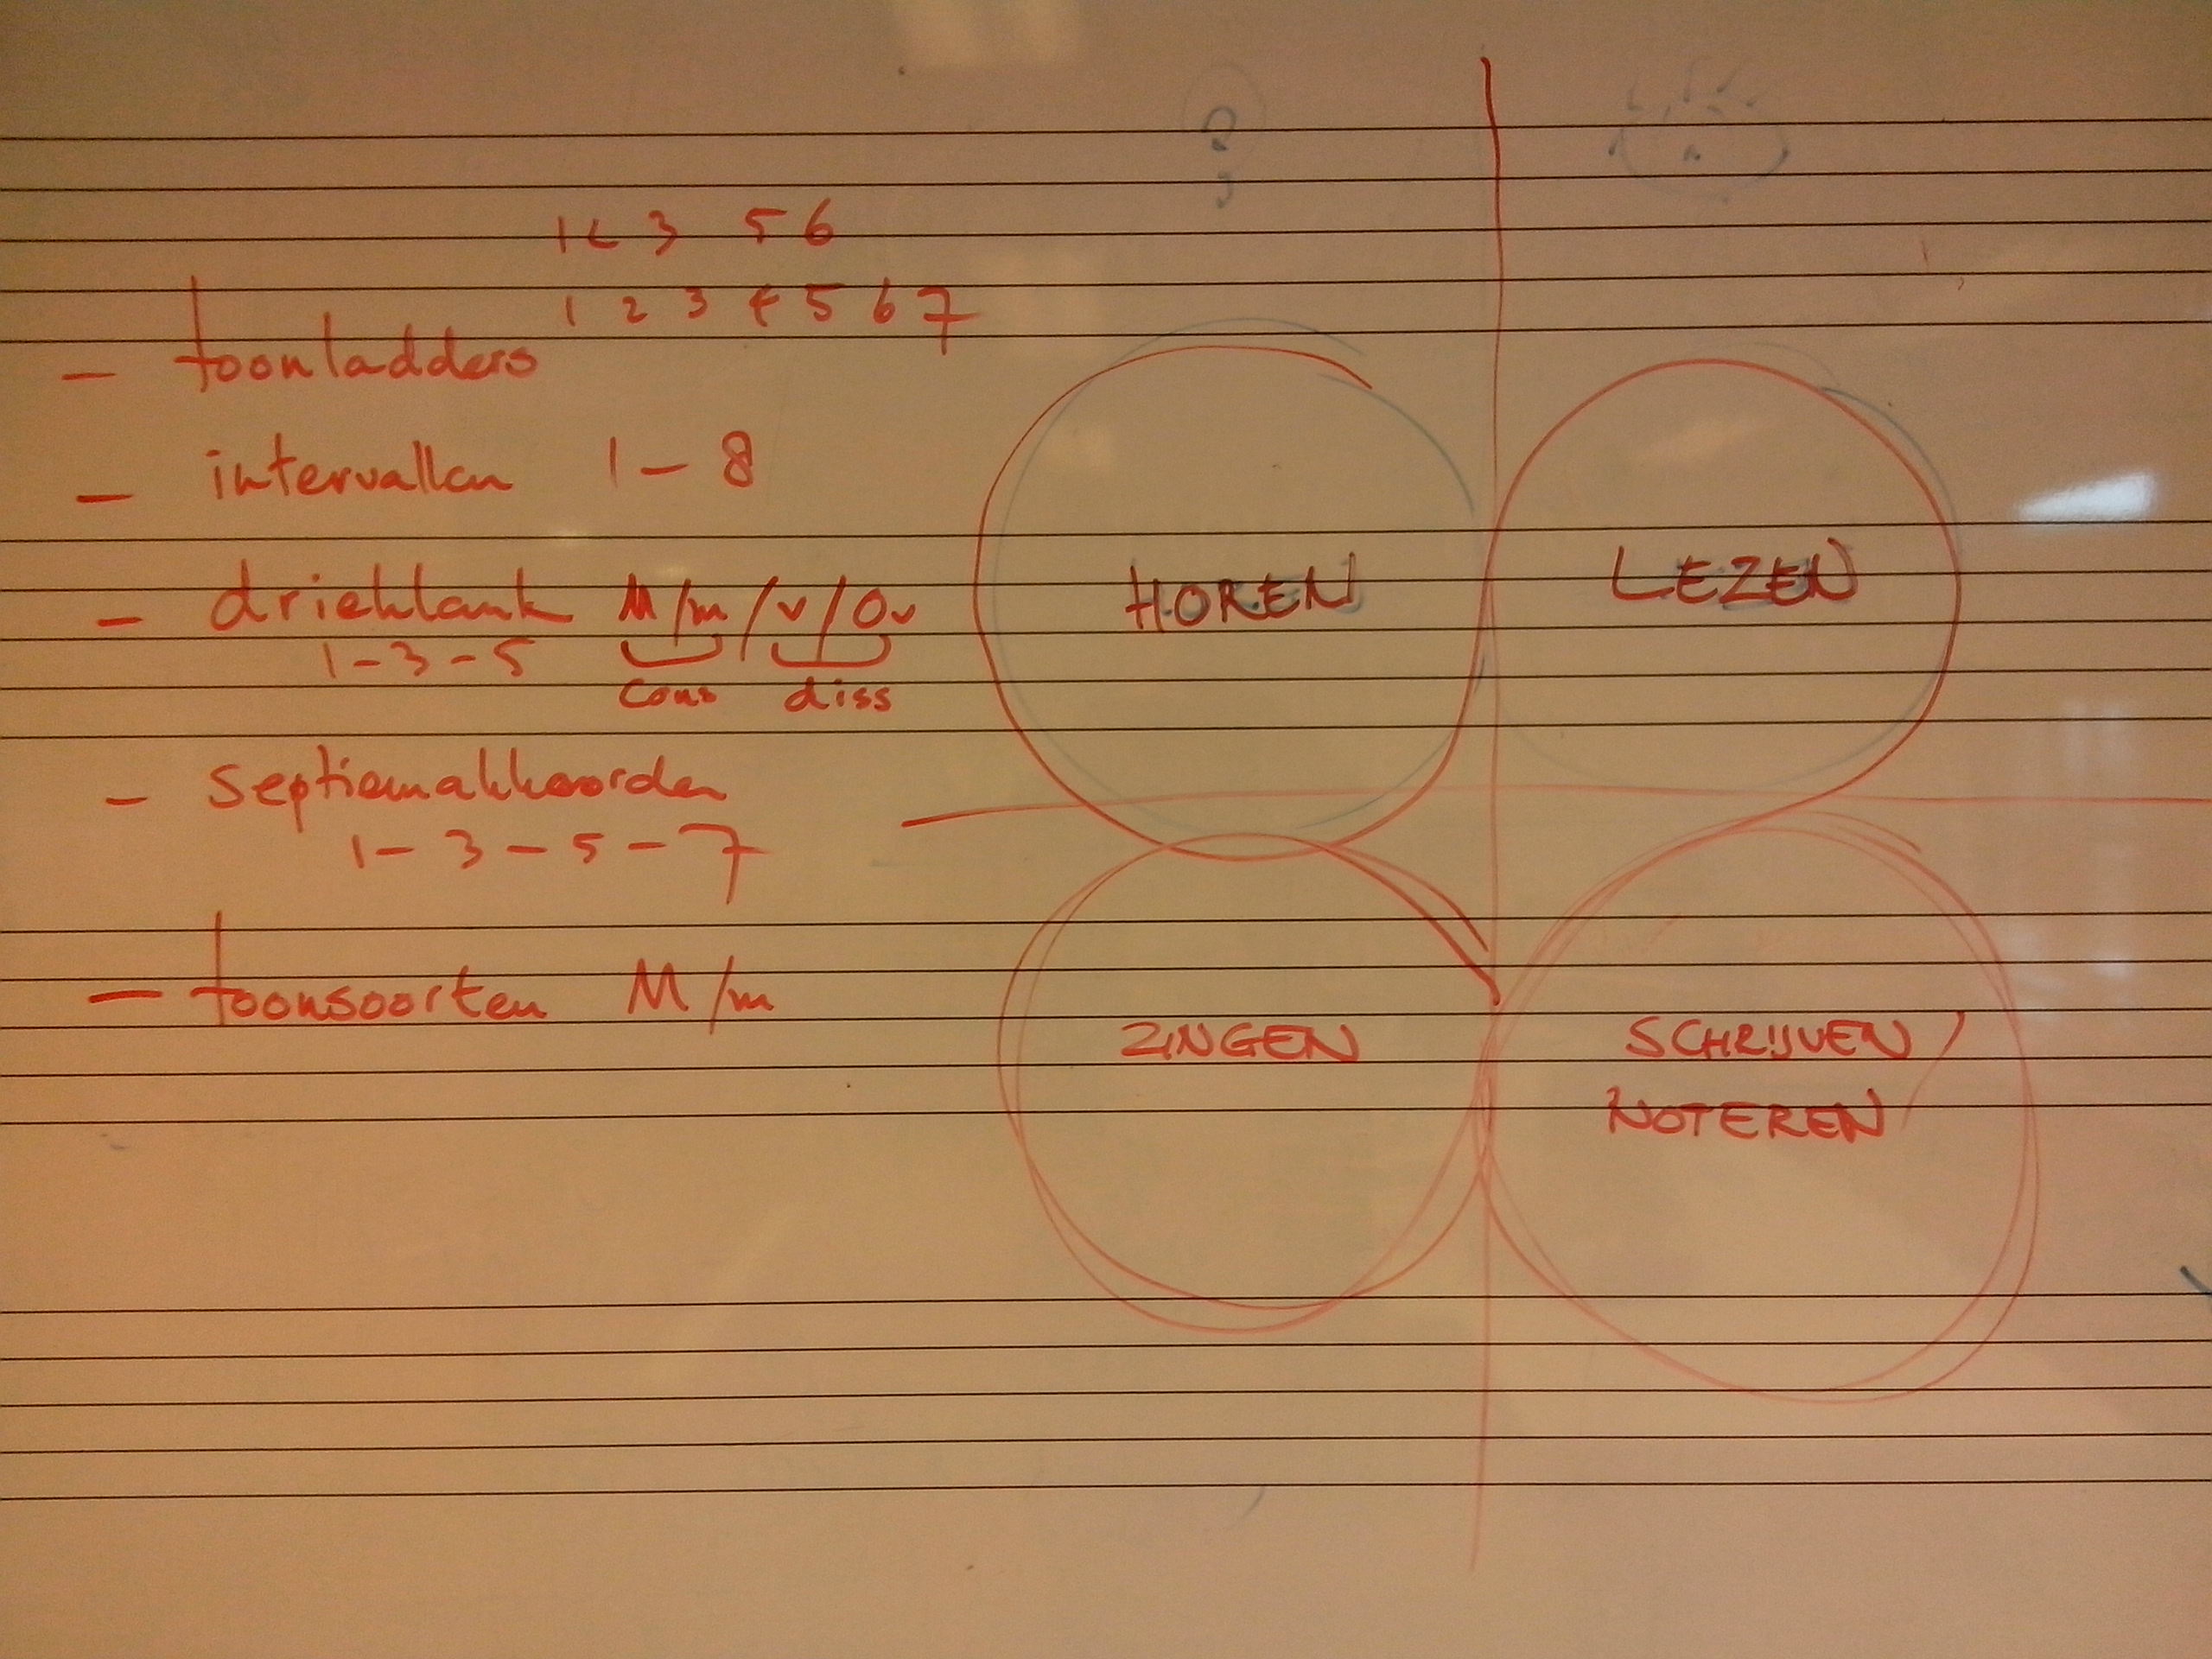 1 2 3 5 6
1 2 3 4 5 6 7
- toonladders
- intervallen 1 - 8
- drieklank M/m/v/Ov
1 - 3 - 5
cons diss
- septiemakkoorden
1 - 3 - 5 - 7
- toonsoorten M/m
HOREN
LEZEN
ZINGEN
SCHRIJVEN/
NOTEREN